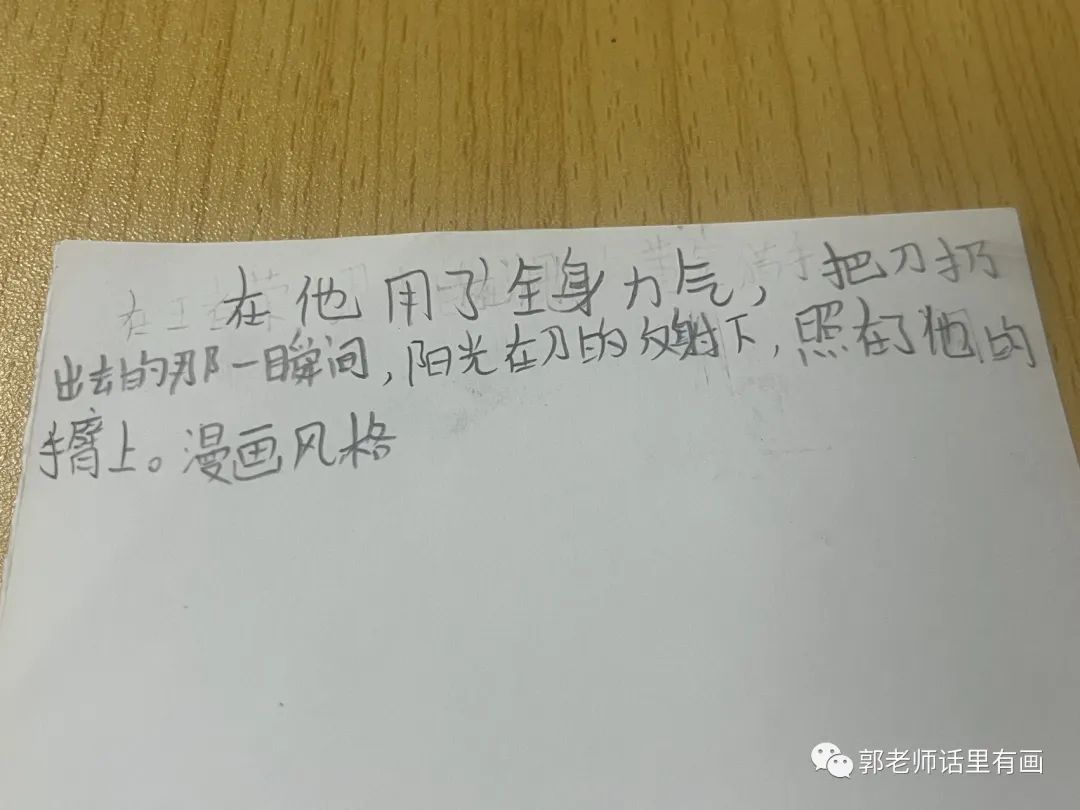 在他用了全身力气，把刀扔
出去的那一瞬间，阳光在刀的反射下，照在了他的
手臂上。漫画风格
郭老师话里有画